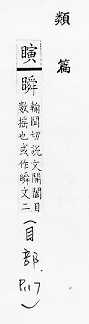 類篇
瞚瞬
輸閏切説文開闔目
數摇也或作瞬文二
(目部. P.117)